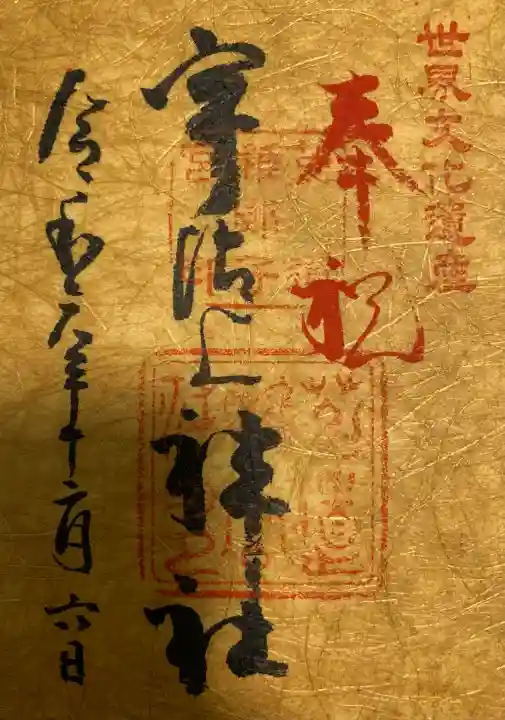 世界文化遺産
奉祝
宇治上神社
令和元年十二月六日